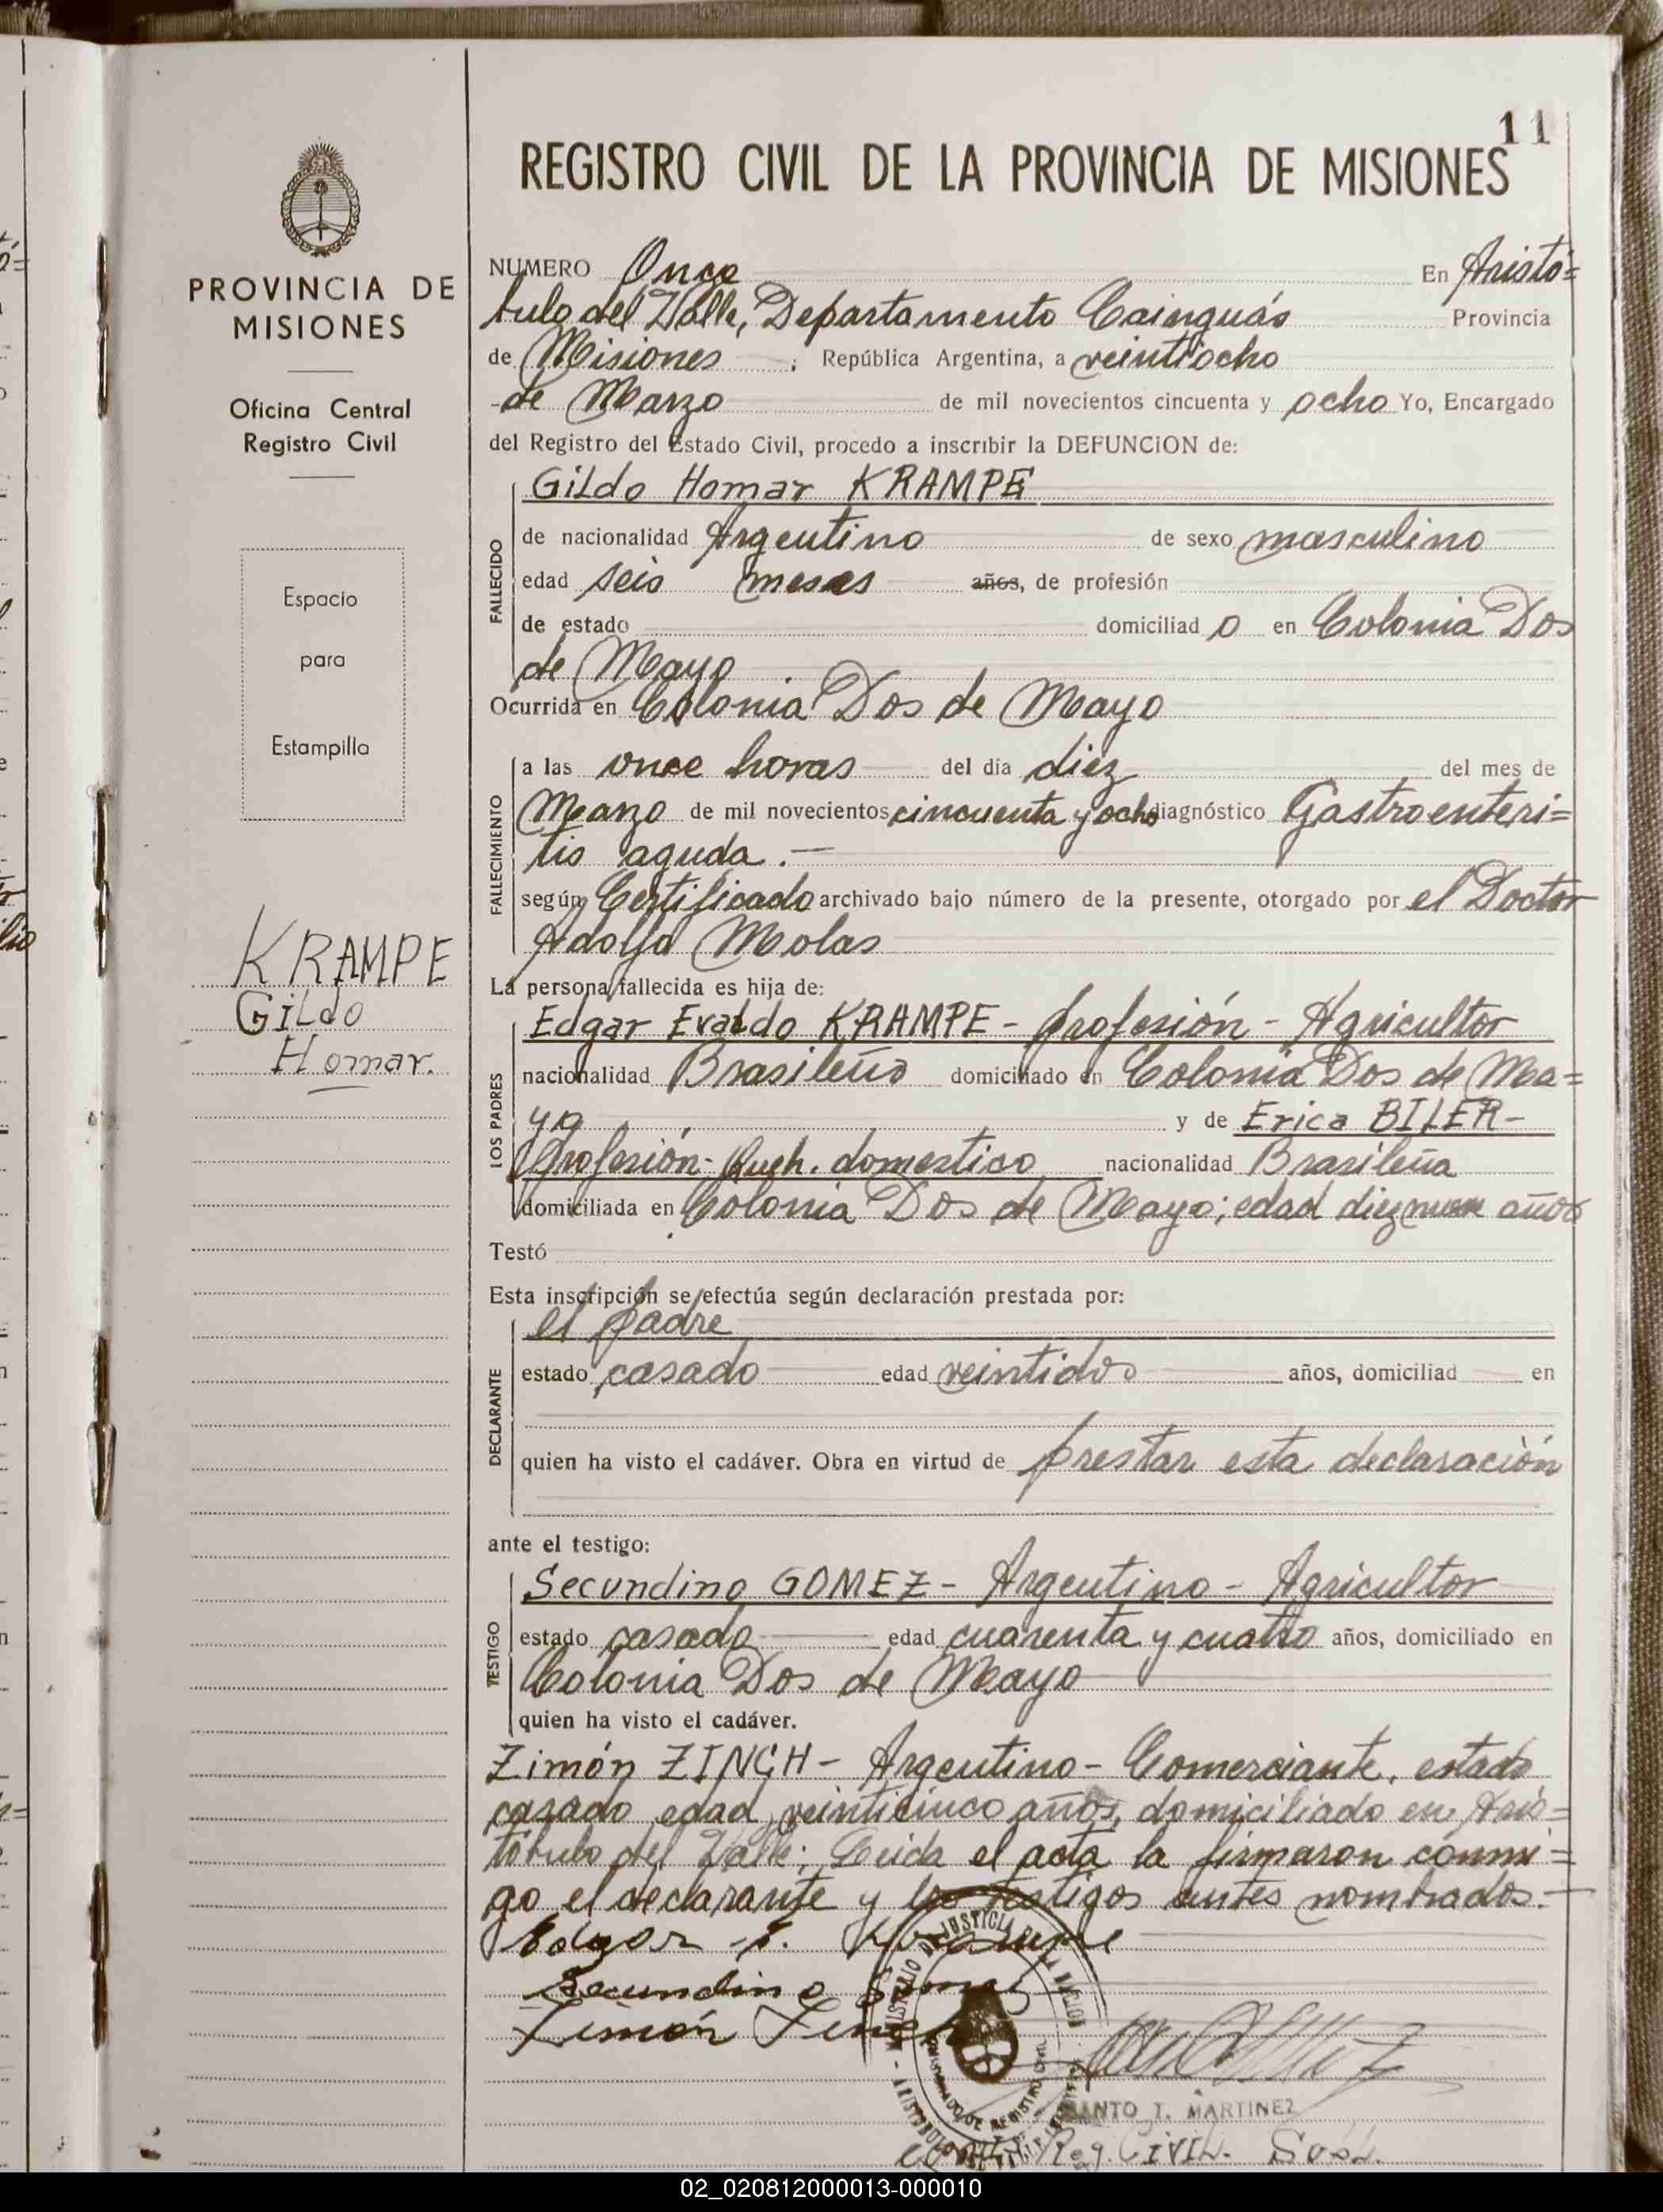 11
REGISTRO CIVIL DE LA PROVINCIA DE MISIONES
PROVINCIA DE
MISIONES
Oficina Central
Registro Civil
Espacio
para
Estampilla
KRAMPE
Gildo
Homar.
NUMERO Once En Aristó=
bulo del Valle, Departamento Cainguás Provincia
de Misiones ; República Argentina, a veintiocho
de Marzo de mil novecientos cincuenta y ocho Yo, Encargado
del Registro del Estado Civil, procedo a inscribir la DEFUNCION de:
FALLECIDO
Gildo Homar KRAMPE
de nacionalidad Argentino de sexo masculino
edad seis meses años, de profesión
de estado domiciliad o en Colonia Dos
de Mayo
Ocurrida en Colonia Dos de Mayo
FALLECIMIENTO
a las once horas del día diez del mes de
Marzo de mil novecientos cincuenta y ocho diagnóstico Gastroenteri=
tis aguda.—
según Certificado archivado bajo número de la presente, otorgado por el Doctor
Adolfo Molas
La persona fallecida es hija de:
LOS PADRES
Edgar Evaldo KRAMPE - profesión - Agricultor
nacionalidad Brasileño domiciliado en Colonia Dos de Ma=
yo y de Erica BILER-
profesión- Queh. domestico nacionalidad Brasileña
domiciliada en Colonia Dos de Mayo; edad diez nueve años
Testó
Esta inscripción se efectúa según declaración prestada por:
DECLARANTE
el padre
estado casado edad veintidos años, domiciliad en
quien ha visto el cadáver. Obra en virtud de prestar esta declaración
ante el testigo:
TESTIGO
Secundino GOMEZ - Argentino - Agricultor
estado casado edad cuarenta y cuatro años, domiciliado en
Colonia Dos de Mayo
quien ha visto el cadáver.
Zimón ZINCH - Argentino - Comerciante, estado
casado edad veinticinco años, domiciliado en Aris=
tóbulo del Valle; Leida el acta la firmaron conmi=
go el declarante y los testigos antes nombrados.—
Edgar E. Krampe
Secundino Gomez
Zimón Zinch
MINISTERIO DE JUSTICIA DE LA NACION
T. MARTINEZ
Reg. CIVIL.
02_020812000013-000010